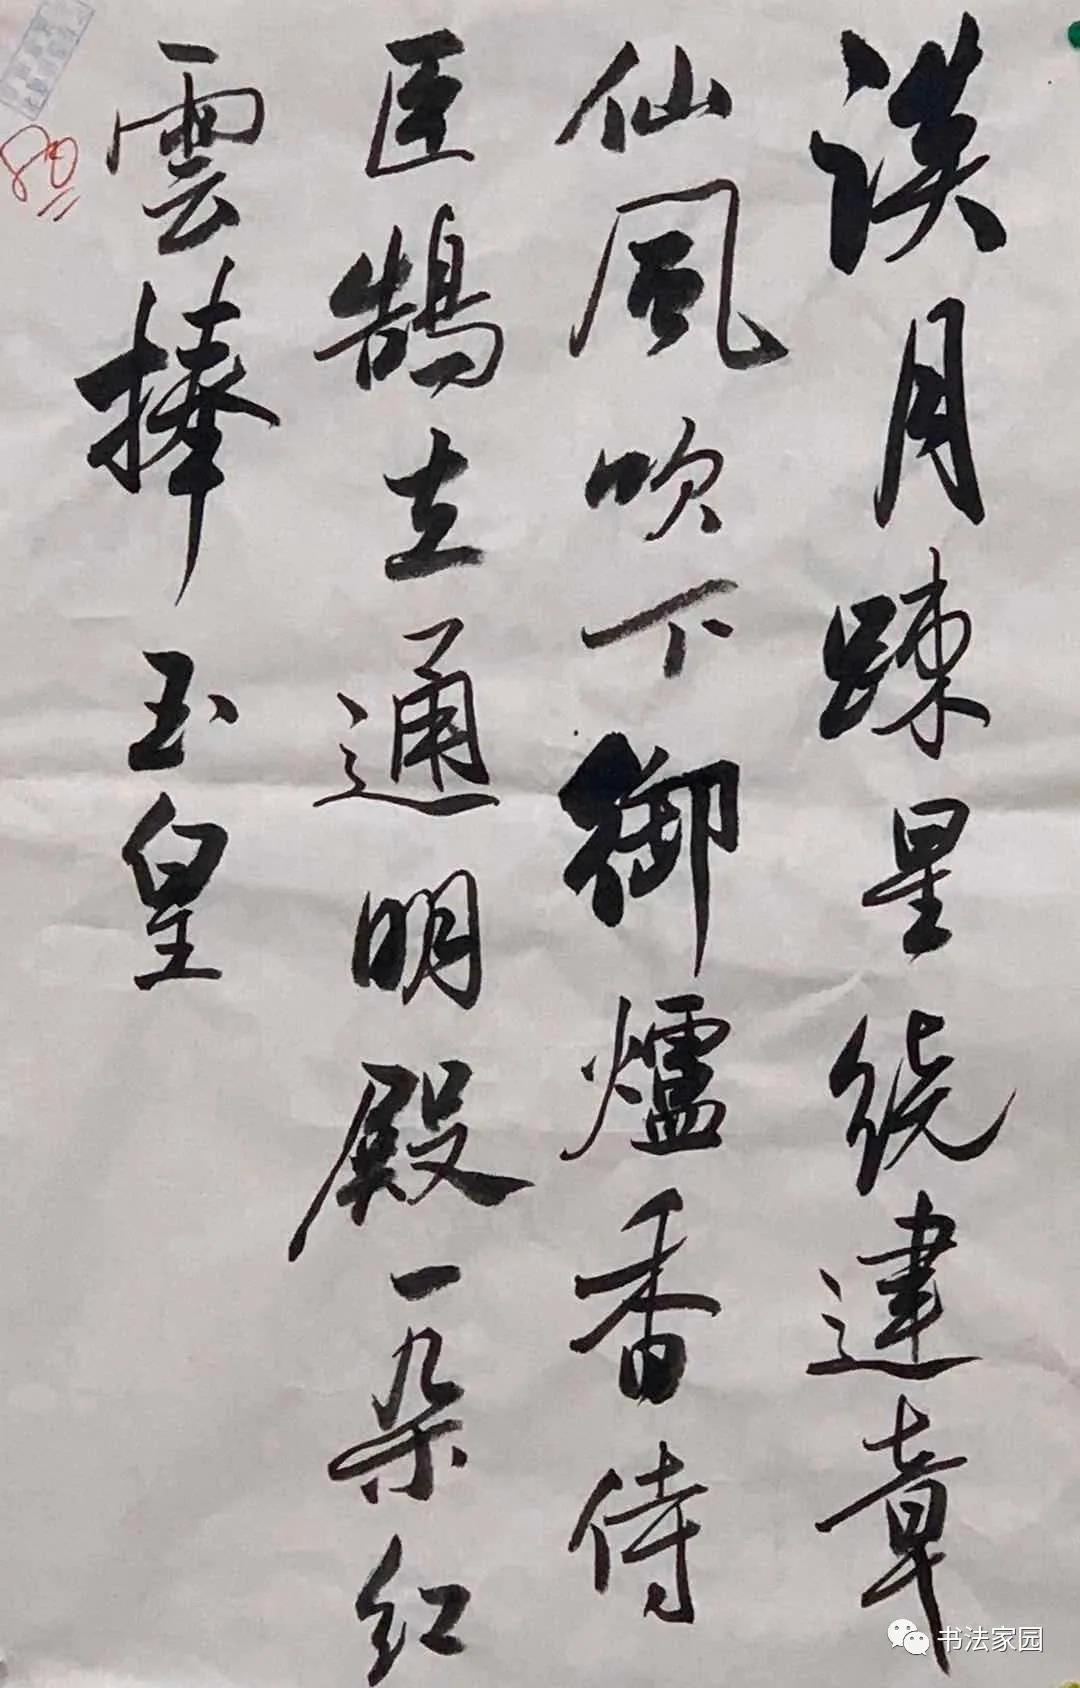 淡月踈星绕建章
仙風吹下御爐香侍
臣鵠立通明殿一朵红
雲捧玉皇
80
书法家园